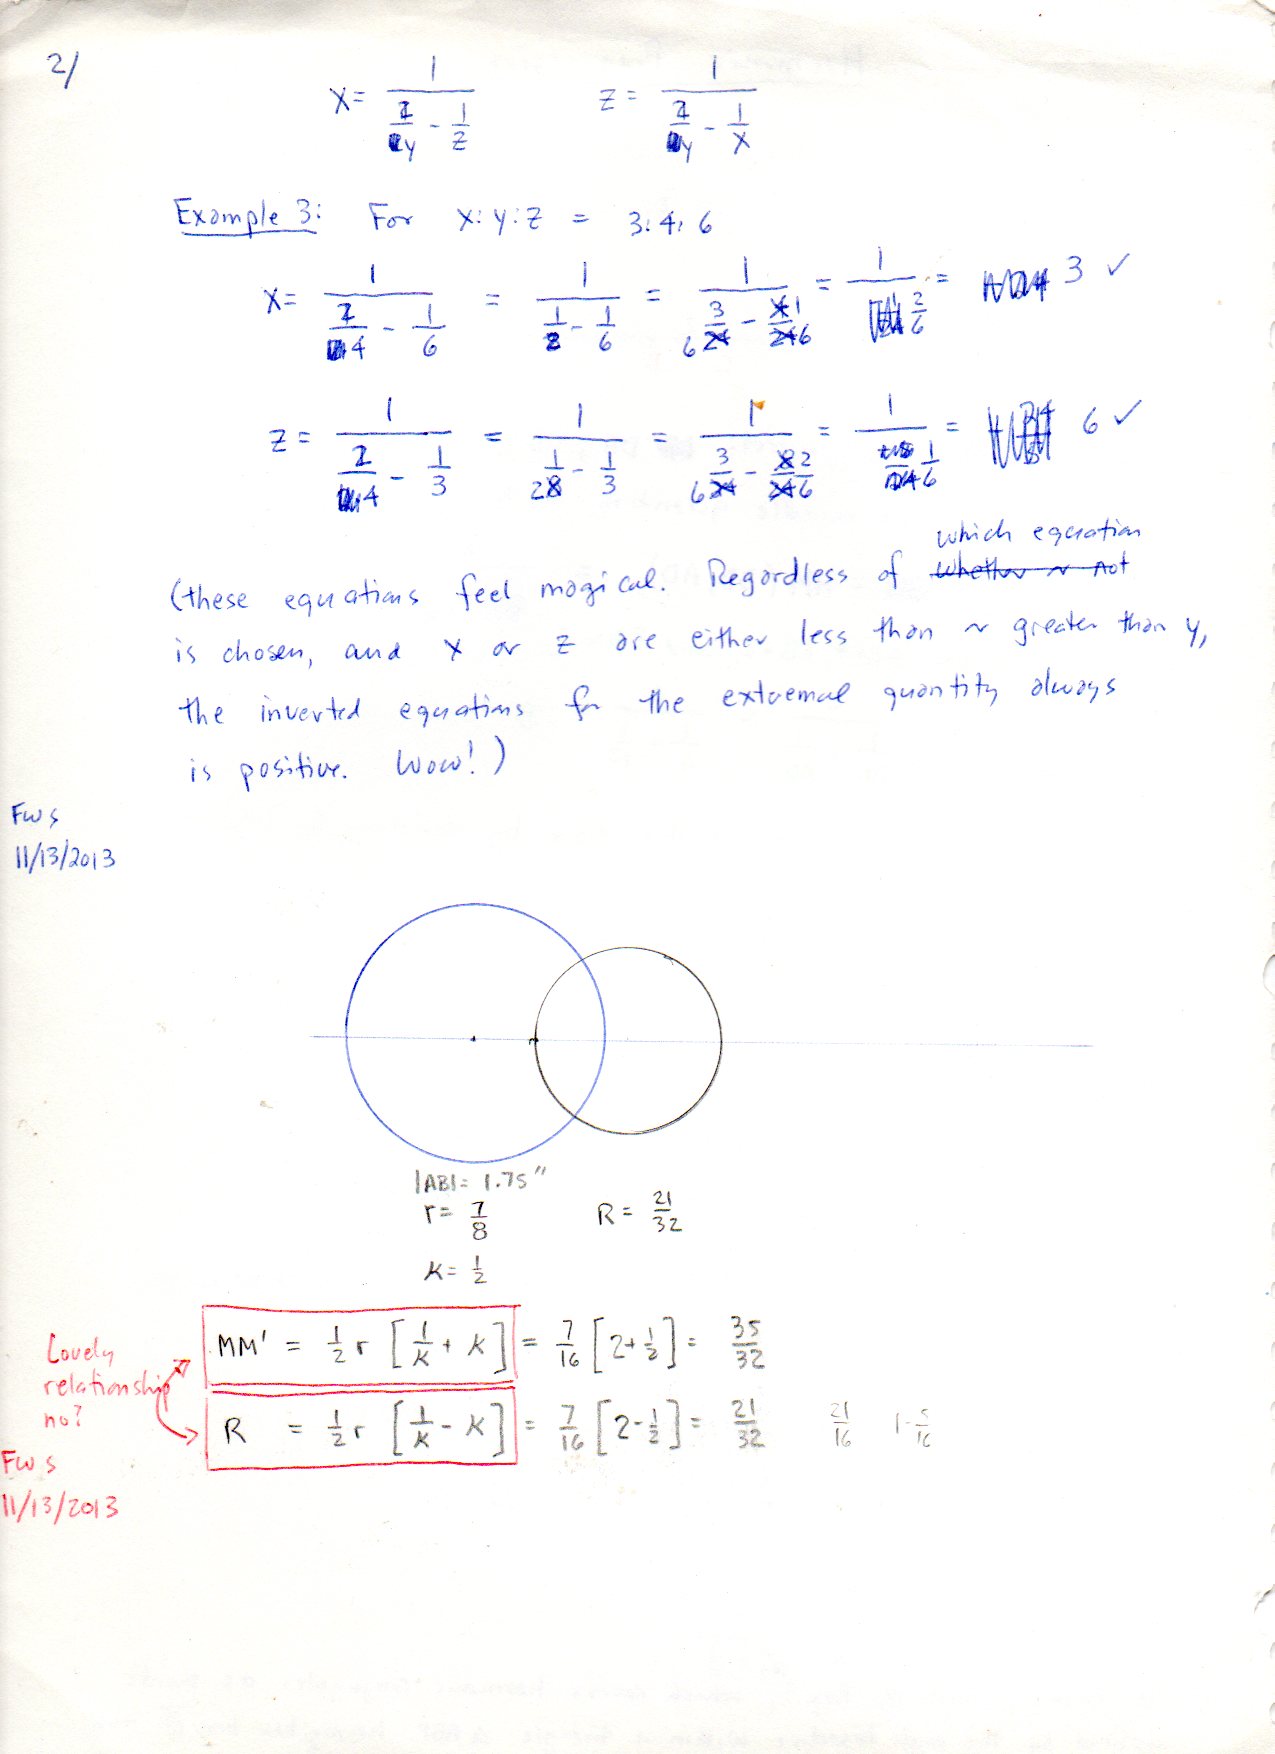 2/
x = 1 / (2/y - 1/z)    z = 1 / (2/y - 1/x)
Example 3: For x:y:z = 3:4:6
x = 1 / (2/4 - 1/6) = 1 / (1/2 - 1/6) = 1 / (3/6 - 1/6) = 1 / (2/6) = 3 ✓
z = 1 / (2/4 - 1/3) = 1 / (1/2 - 1/3) = 1 / (3/6 - 2/6) = 1 / (1/6) = 6 ✓
which equation
(these equations feel magical. Regardless of whether or not
is chosen, and x or z are either less than or greater than y,
the inverted equations for the extremal quantity always
is positive. Wow!)
FWS
11/13/2013
|AB| = 1.75"
r = 7/8    R = 21/32
K = 1/2
MM' = 1/2 r [1/K + K] = 7/16 [2 + 1/2] = 35/32
Lovely
relationship
no?
R = 1/2 r [1/K - K] = 7/16 [2 - 1/2] = 21/32    21/16    1 - 5/16
FWS
11/13/2013